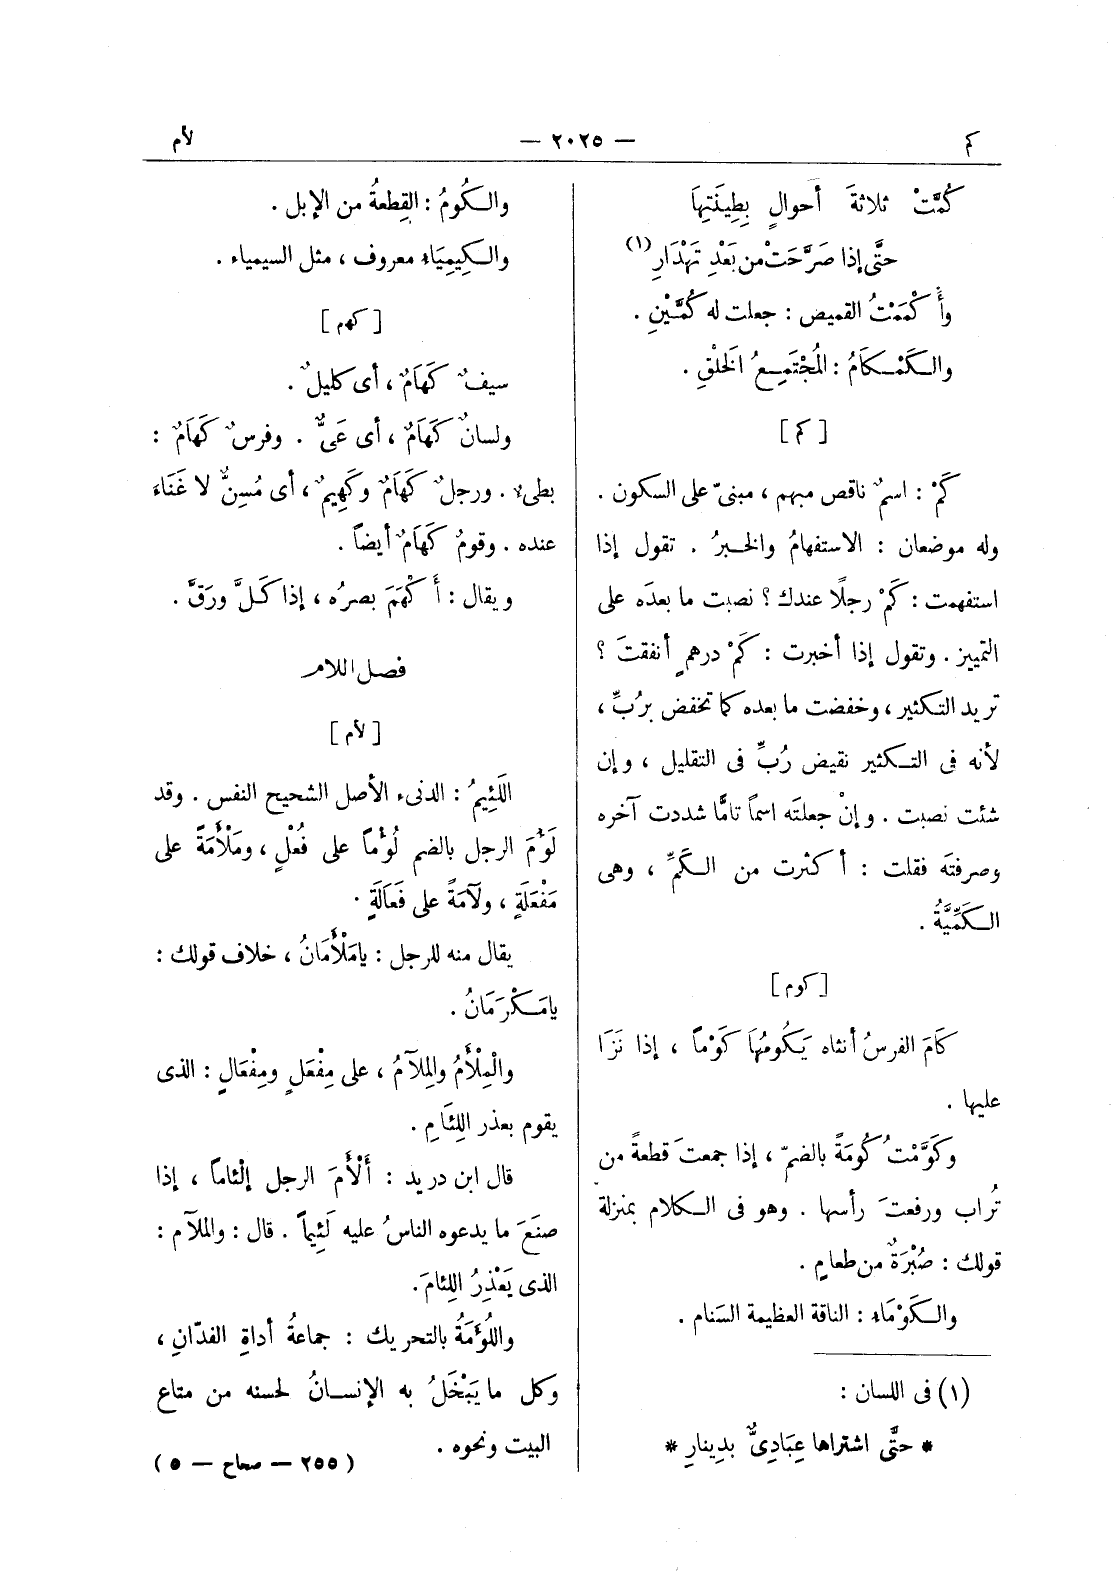 كم
— ٢٠٢٥ —
لأم
كُمَّتْ ثلاثةَ أحوالٍ بِطِينَتِهَا
حتَّى إذا صَرَّحَتْ من بَعْدِ تَهْدَارِ (١)
وأَكْمَمْتُ القميص : جعلت له كُمَّيْنِ .
والكَمْكَامُ : المُجْتَمِعُ الخَلْقِ .
[ كم ]
كَمْ : اسمٌ ناقص مبهم ، مبنىّ على السكون .
وله موضعان : الاستفهامُ والخبرُ . تقول إذا
استفهمت : كَمْ رجلًا عندك ؟ نصبت ما بعدَه على
التمييز . وتقول إذا أخبرت : كَمْ درهمٍ أنفقتَ ؟
تريد التكثير ، وخفضت ما بعده كما تخفض برُبَّ ،
لأنه فى التكثير نقيض رُبَّ فى التقليل ، وإن
شئت نصبت . وإنْ جعلتَه اسماً تامًّا شددت آخره
وصرفتَه فقلت : أكثرت من الكَمِّ ، وهى
الكَمِّيَّةُ .
[ كوم ]
كَامَ الفرسُ أنثاه يَكُومُهَا كَوْماً ، إذا نَزَا
عليها .
وكَوَّمْتُ كُومَةً بالضمّ ، إذا جمعتَ قطعةً من
تُراب ورفعتَ رأسها . وهو فى الكلام بمنزلة
قولك : صُبْرَةٌ من طعامٍ .
والكَوْمَاء : الناقة العظيمة السَنام .
(١) فى اللسان :
* حتَّى اشتراها عِبَادِىٌّ بدِينارِ *
والكُومُ : القِطعةُ من الإبل .
والكِيمِيَاء معروف ، مثل السيمياء .
[ كهم ]
سيفٌ كَهَامٌ ، أى كليلٌ .
ولسانٌ كَهَامٌ ، أى عَىٌّ . وفرسٌ كَهَامٌ :
بطىء . ورجلٌ كَهَامٌ وكَهِيمٌ ، أى مُسِنٌّ لا غَنَاءَ
عنده . وقومٌ كَهَامٌ أيضاً .
ويقال : أَكْهَمَ بصرُه ، إذا كَلَّ ورَقَّ .
فصل اللام
[ لأم ]
اللَئِيمُ : الدنىء الأصل الشحيح النفس . وقد
لَؤُمَ الرجل بالضم لُؤْماً على فُعْلٍ ، ومَلْأَمَةً على
مَفْعَلَةٍ ، ولَآمَةً على فَعَالَةٍ .
يقال منه للرجل : يامَلْأَمَانُ ، خلاف قولك :
يامَكْرَمَانُ .
والْمِلْأَمُ والمِلآمُ ، على مِفْعَلٍ ومِفْعَالٍ : الذى
يقوم بعذر اللِئَامِ .
قال ابن دريد : أَلْأَمَ الرجل إلْئاماً ، إذا
صنَعَ ما يدعوه الناسُ عليه لَئِيماً . قال : والملآم :
الذى يَعْذِرُ اللِئامَ .
واللُؤَمَةُ بالتحريك : جماعةُ أداةِ الفدّانِ ،
وكل ما يَبْخَلُ به الإنسانُ لحسنه من متاع
البيت ونحوه .
( ٢٥٥ — صحاح — ٥ )